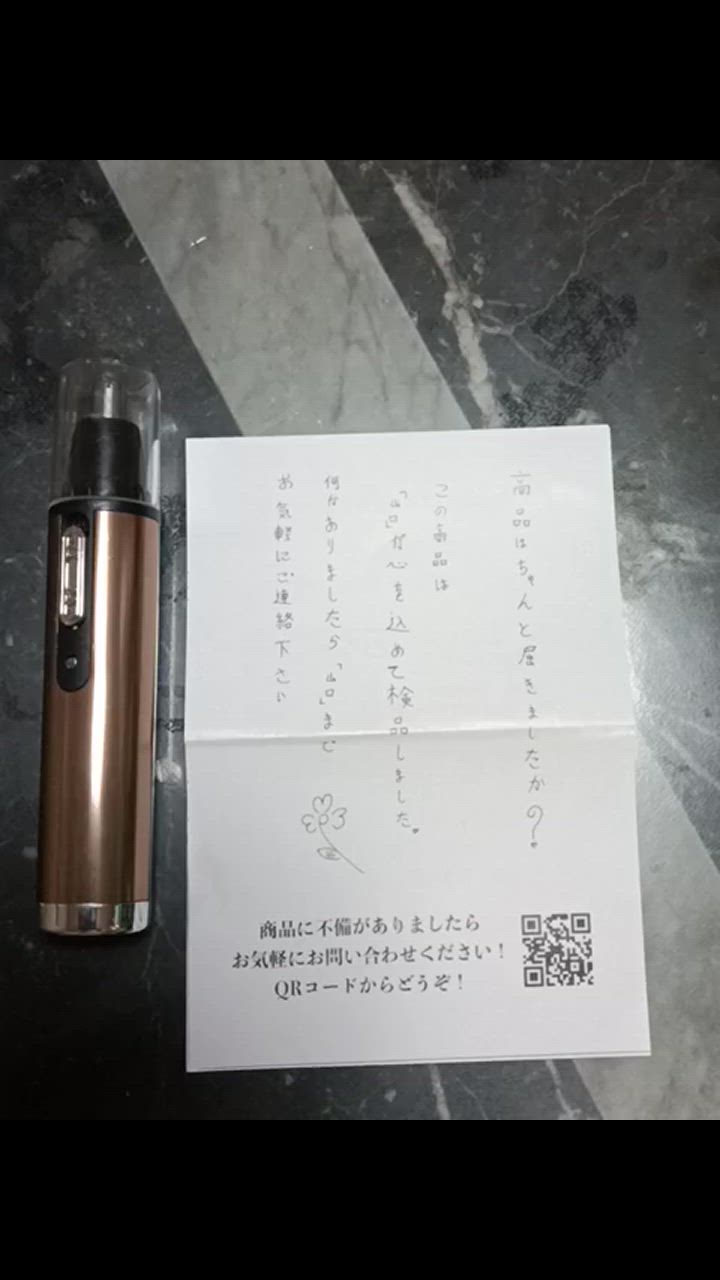 商品はちゃんと届きましたか?
この商品は
「山口」が心を込めて検品しました。
何かありましたら「山口」まで
お気軽にご連絡下さい
商品に不備がありましたら
お気軽にお問い合わせください！
QRコードからどうぞ！